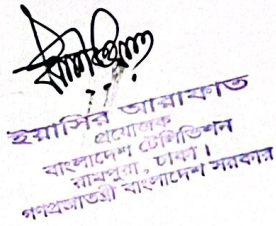 ইয়াসির আরাফাত
প্রযোজক
বাংলাদেশ টেলিভিশন
রামপুরা, ঢাকা।
গণপ্রজাতন্ত্রী বাংলাদেশ সরকার